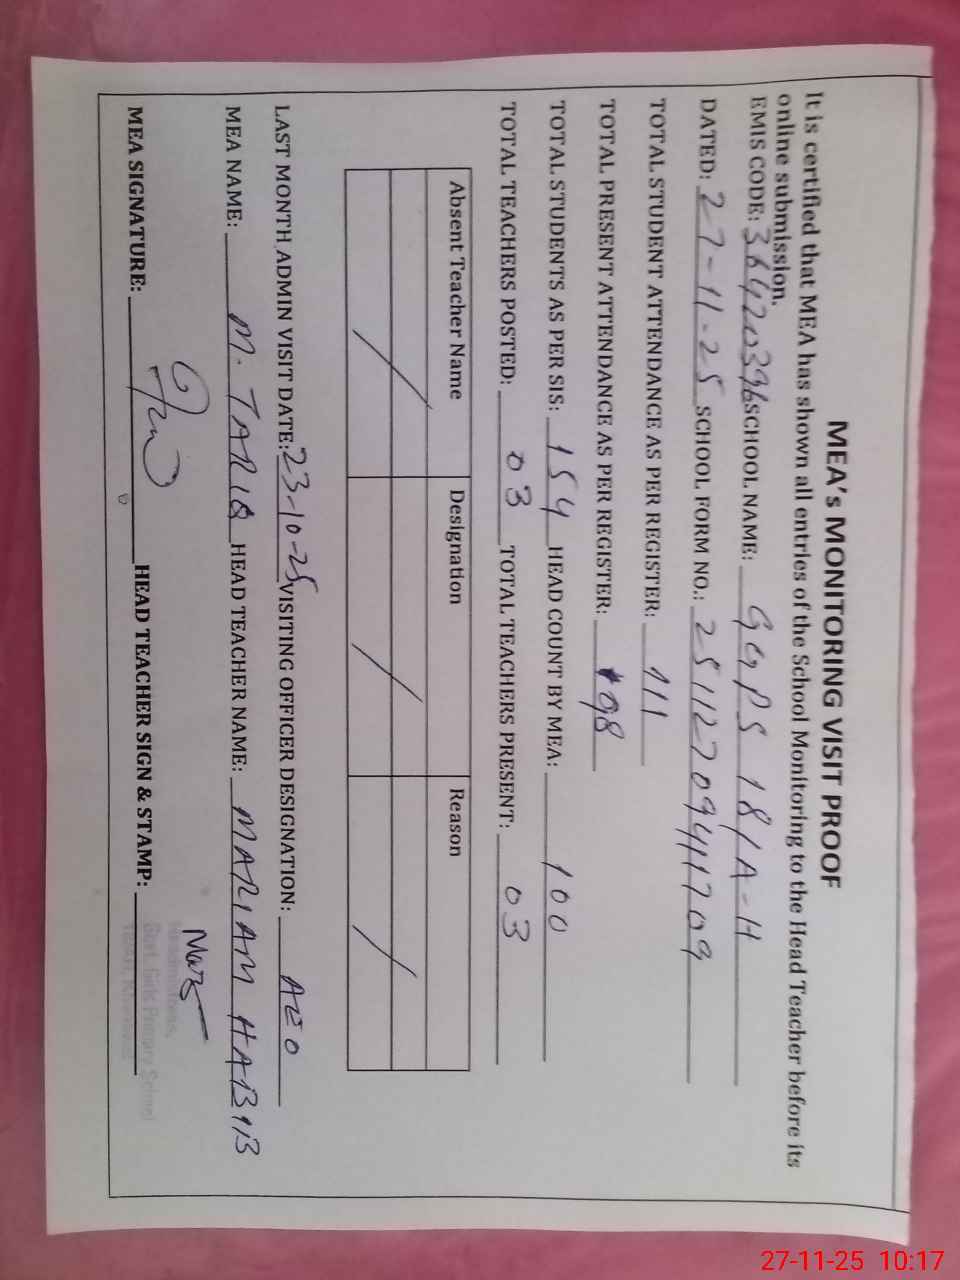 MEA's MONITORING VISIT PROOF
It is certified that MEA has shown all entries of the School Monitoring to the Head Teacher before its
online submission.
EMIS CODE: 36420396 SCHOOL NAME: GGPS 18/A-H
DATED: 27-11-25 SCHOOL FORM NO.: 251127094111709
TOTAL STUDENT ATTENDANCE AS PER REGISTER: 111
TOTAL PRESENT ATTENDANCE AS PER REGISTER: 98
TOTAL STUDENTS AS PER SIS: 154 HEAD COUNT BY MEA: 100
TOTAL TEACHERS POSTED: 03 TOTAL TEACHERS PRESENT: 03
Absent Teacher Name Designation Reason
/ / /
LAST MONTH ADMIN VISIT DATE: 23-10-25 VISITING OFFICER DESIGNATION: AEO
MEA NAME: M. TARIQ HEAD TEACHER NAME: MARIAM HABIB
MEA SIGNATURE: HEAD TEACHER SIGN & STAMP:
Headmistress,
Govt. Girls Primary School
27-11-25 10:17